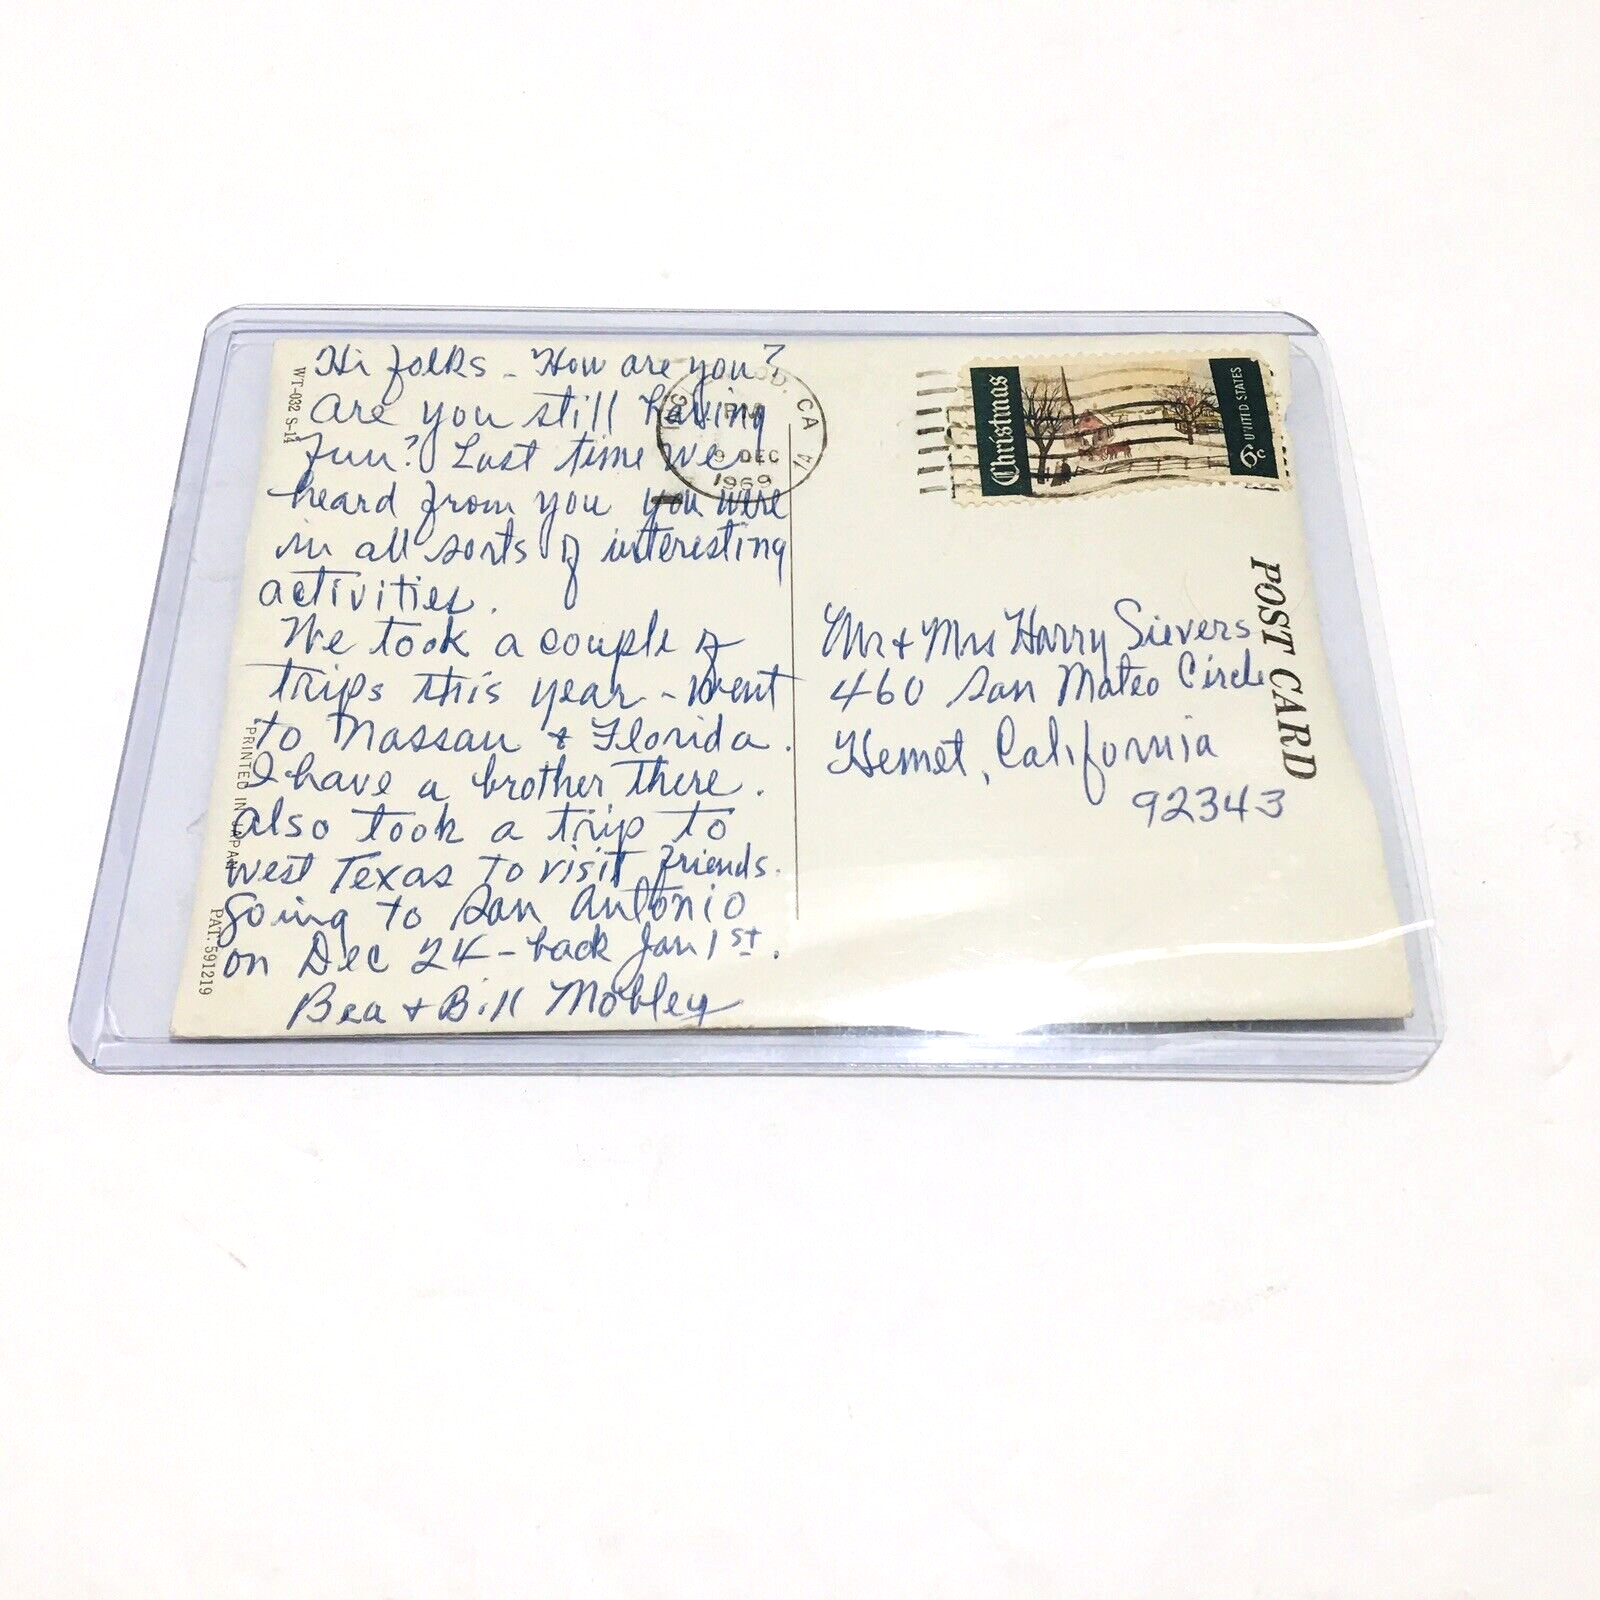 Hi folks - How are you?
Are you still having
fun? Last time we
heard from you you were
in all sorts of interesting
activities.
We took a couple of
trips this year - went
to Nassau & Florida.
I have a brother there.
Also took a trip to
West Texas to visit friends.
Going to San Antonio
on Dec 24 - back Jan 1st.
Bea + Bill Mobley
WT-032 S-14
PRINTED IN JAPAN
PAT. 591219
CA
PM
9 DEC
1969
Christmas
6c UNITED STATES
POST CARD
Mr + Mrs Harry Sievers
460 San Mateo Circle
Hemet, California
92343